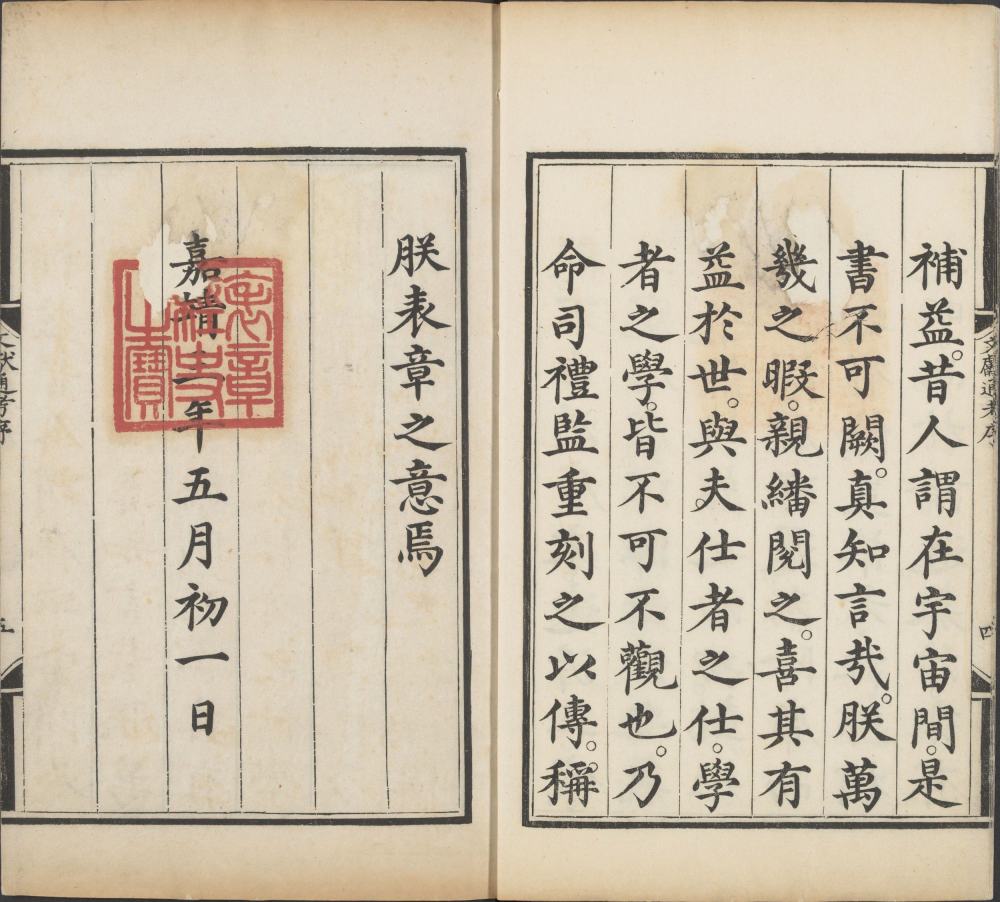 補益。昔人謂在宇宙間。是
書不可闕。真知言哉。朕萬
幾之暇。親繙閱之。喜其有
益於世。與夫仕者之仕。學
者之學。皆不可不觀也。乃
命司禮監重刻之以傳。稱
朕表章之意焉
嘉靖年五月初一日
表章
經史
之寶
文獻通考序
四
文獻通考序
五